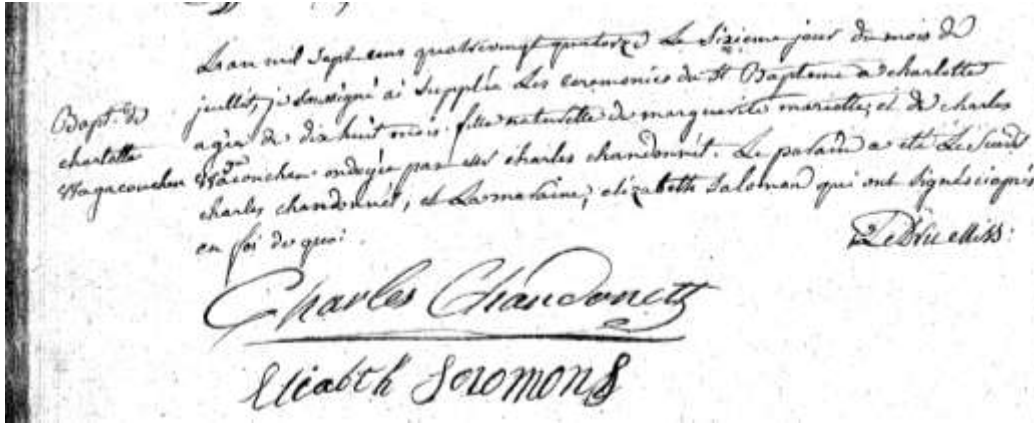 Bapt. de
charlotte
Wagacouchen
L'an mil sept cens quatrevingt quatorze Le Sixieme jour du mois de
juillet, je Soussigné ai Supplée Les ceremonies du St Bapteme a charlotte
agée de dix huit mois. fille naturelle de marguerite mariette, et de charles
ondoyée par charles chandonnét. Le parain a eté Le Sieur
charles chandonnét, et La maraine, elizabeth Saloman qui ont Signés ciaprès
en foi de quoi.
Le Dru miss:
Charles Chandonett
Elizabth Soromons